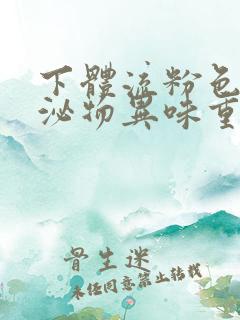 下體流粉色
泌物異味重
骨生迷
未经同意禁止转载